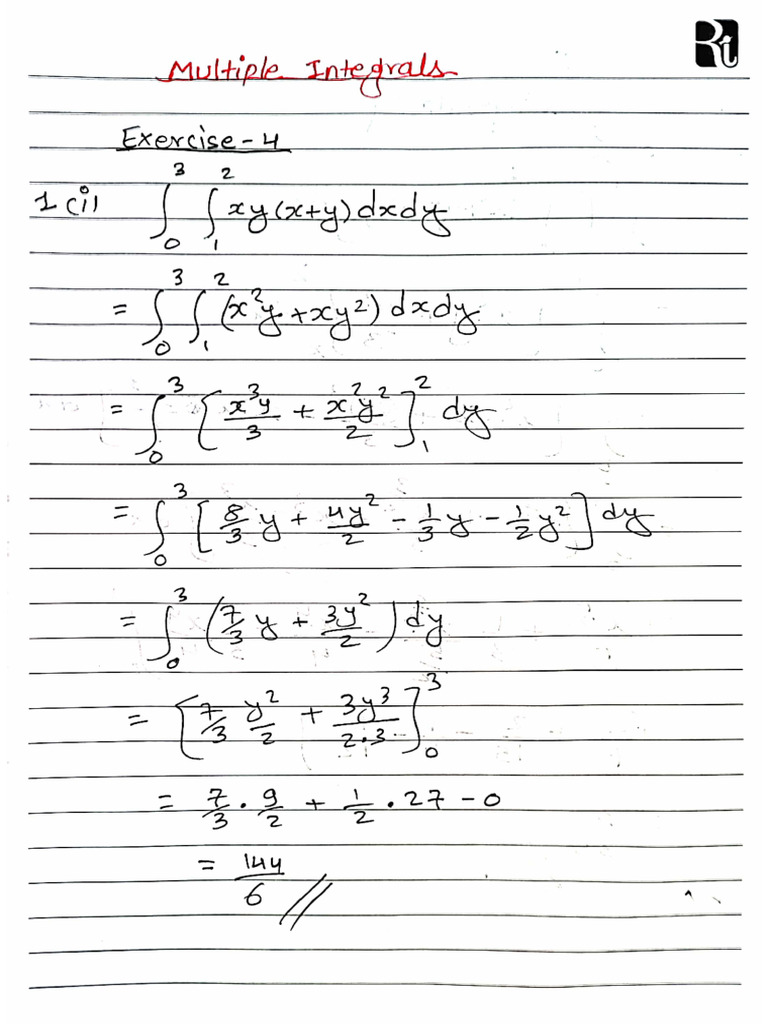 Ri
Multiple Integrals
Exercise-4
1(i) ∫₀³ ∫₁² xy(x+y) dxdy
= ∫₀³ ∫₁² (x²y + xy²) dxdy
= ∫₀³ [x³y/3 + x²y²/2]₁² dy
= ∫₀³ [8/3 y + 4y²/2 - 1/3 y - 1/2 y²] dy
= ∫₀³ (7/3 y + 3y²/2) dy
= [7/3 y²/2 + 3y³/2·3]₀³
= 7/3 · 9/2 + 1/2 · 27 - 0
= 144/6 //